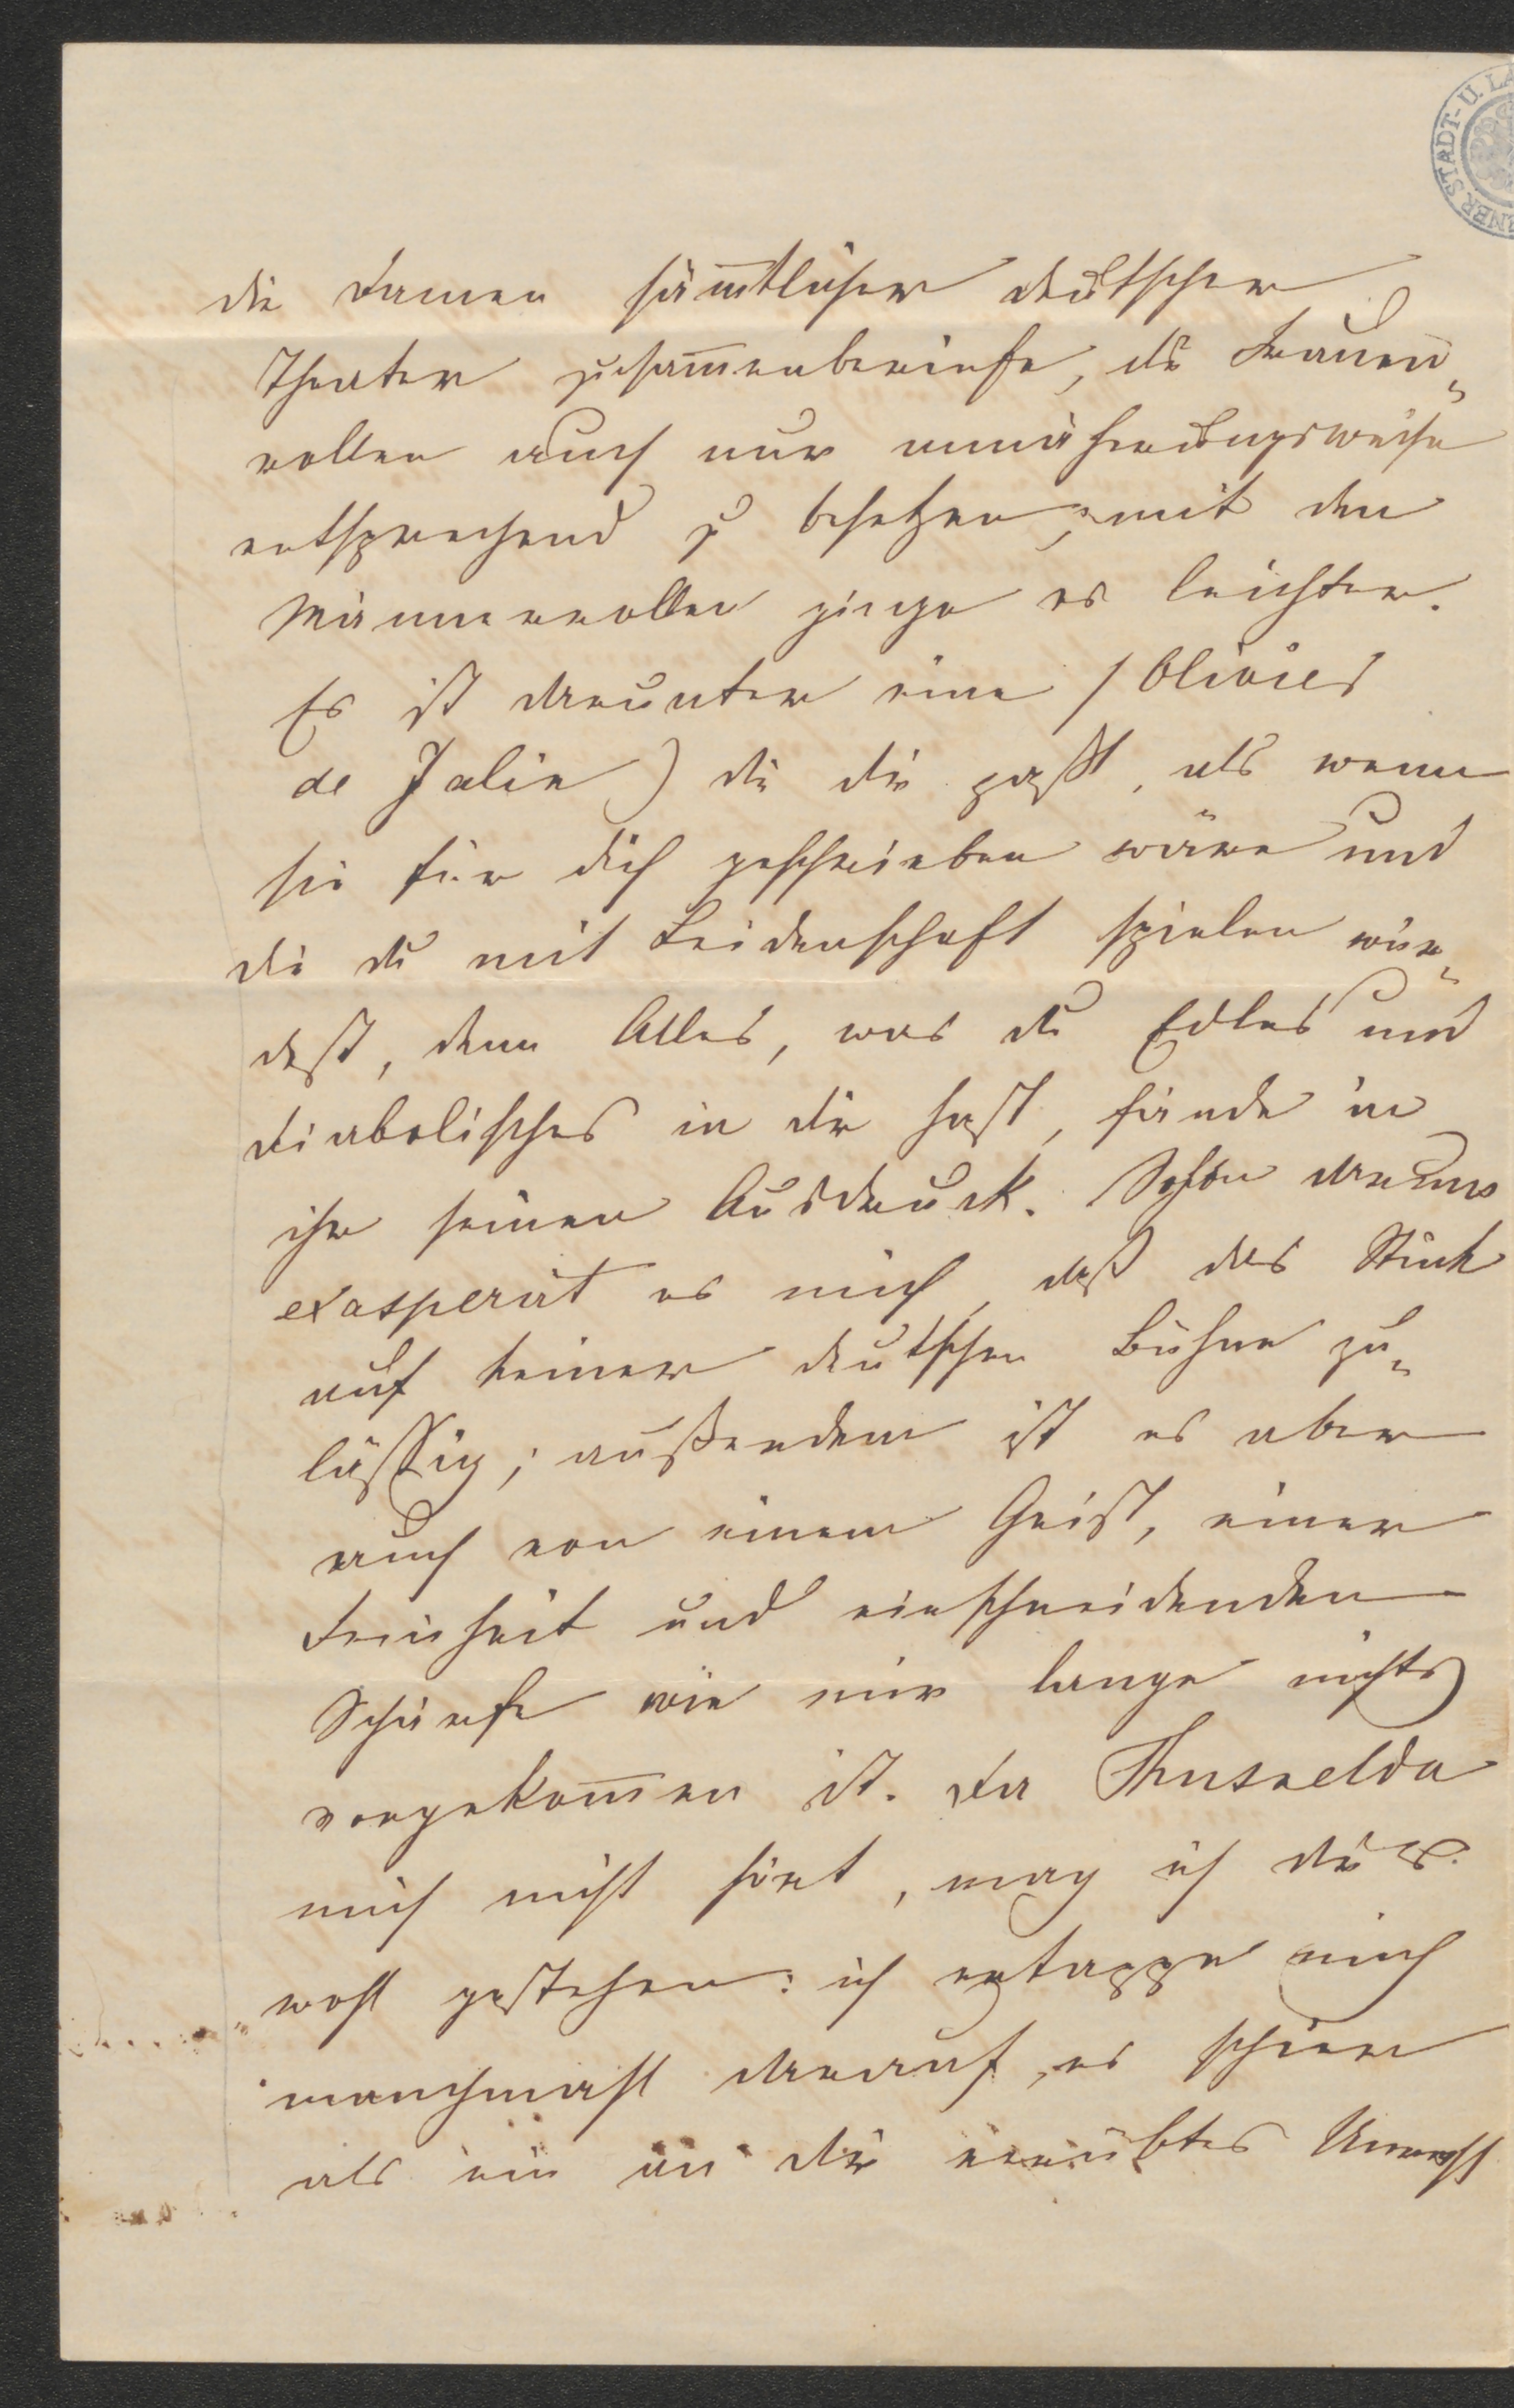 die Damen sämmtlicher deutscher
Theater zusam̅enberiefe, die Frauen-
rollen auch nur annäherungsweise
entsprechend zu besetzen, mit den
Männerrollen ginge es leichter.
Es ist darunter eine /Olivier
de Jalin) die dir paßt, als wenn
sie für dich geschrieben wäre und
die du mit Leidenschaft spielen wür-
dest, denn Alles, was du Edles und
diabolisches in dir hast, fände in
ihr seinen Ausdruck. Schon darum
exasperirt es mich, daß das Stück
auf keiner deutschen Bühne zu-
lässig; außerdem ist es aber
auch von einem Geist, einer
Feinheit und einschneidenden
Schärfe wie mir lange nichts
vorgekom̅en ist. Da Thusnelda
mich nicht hört, mag ich dir es
wohl gestehen: ich ertappe mich
manchmahl darauf, es schier
als ein an dir verübtes Unrecht
STADT- U. LA